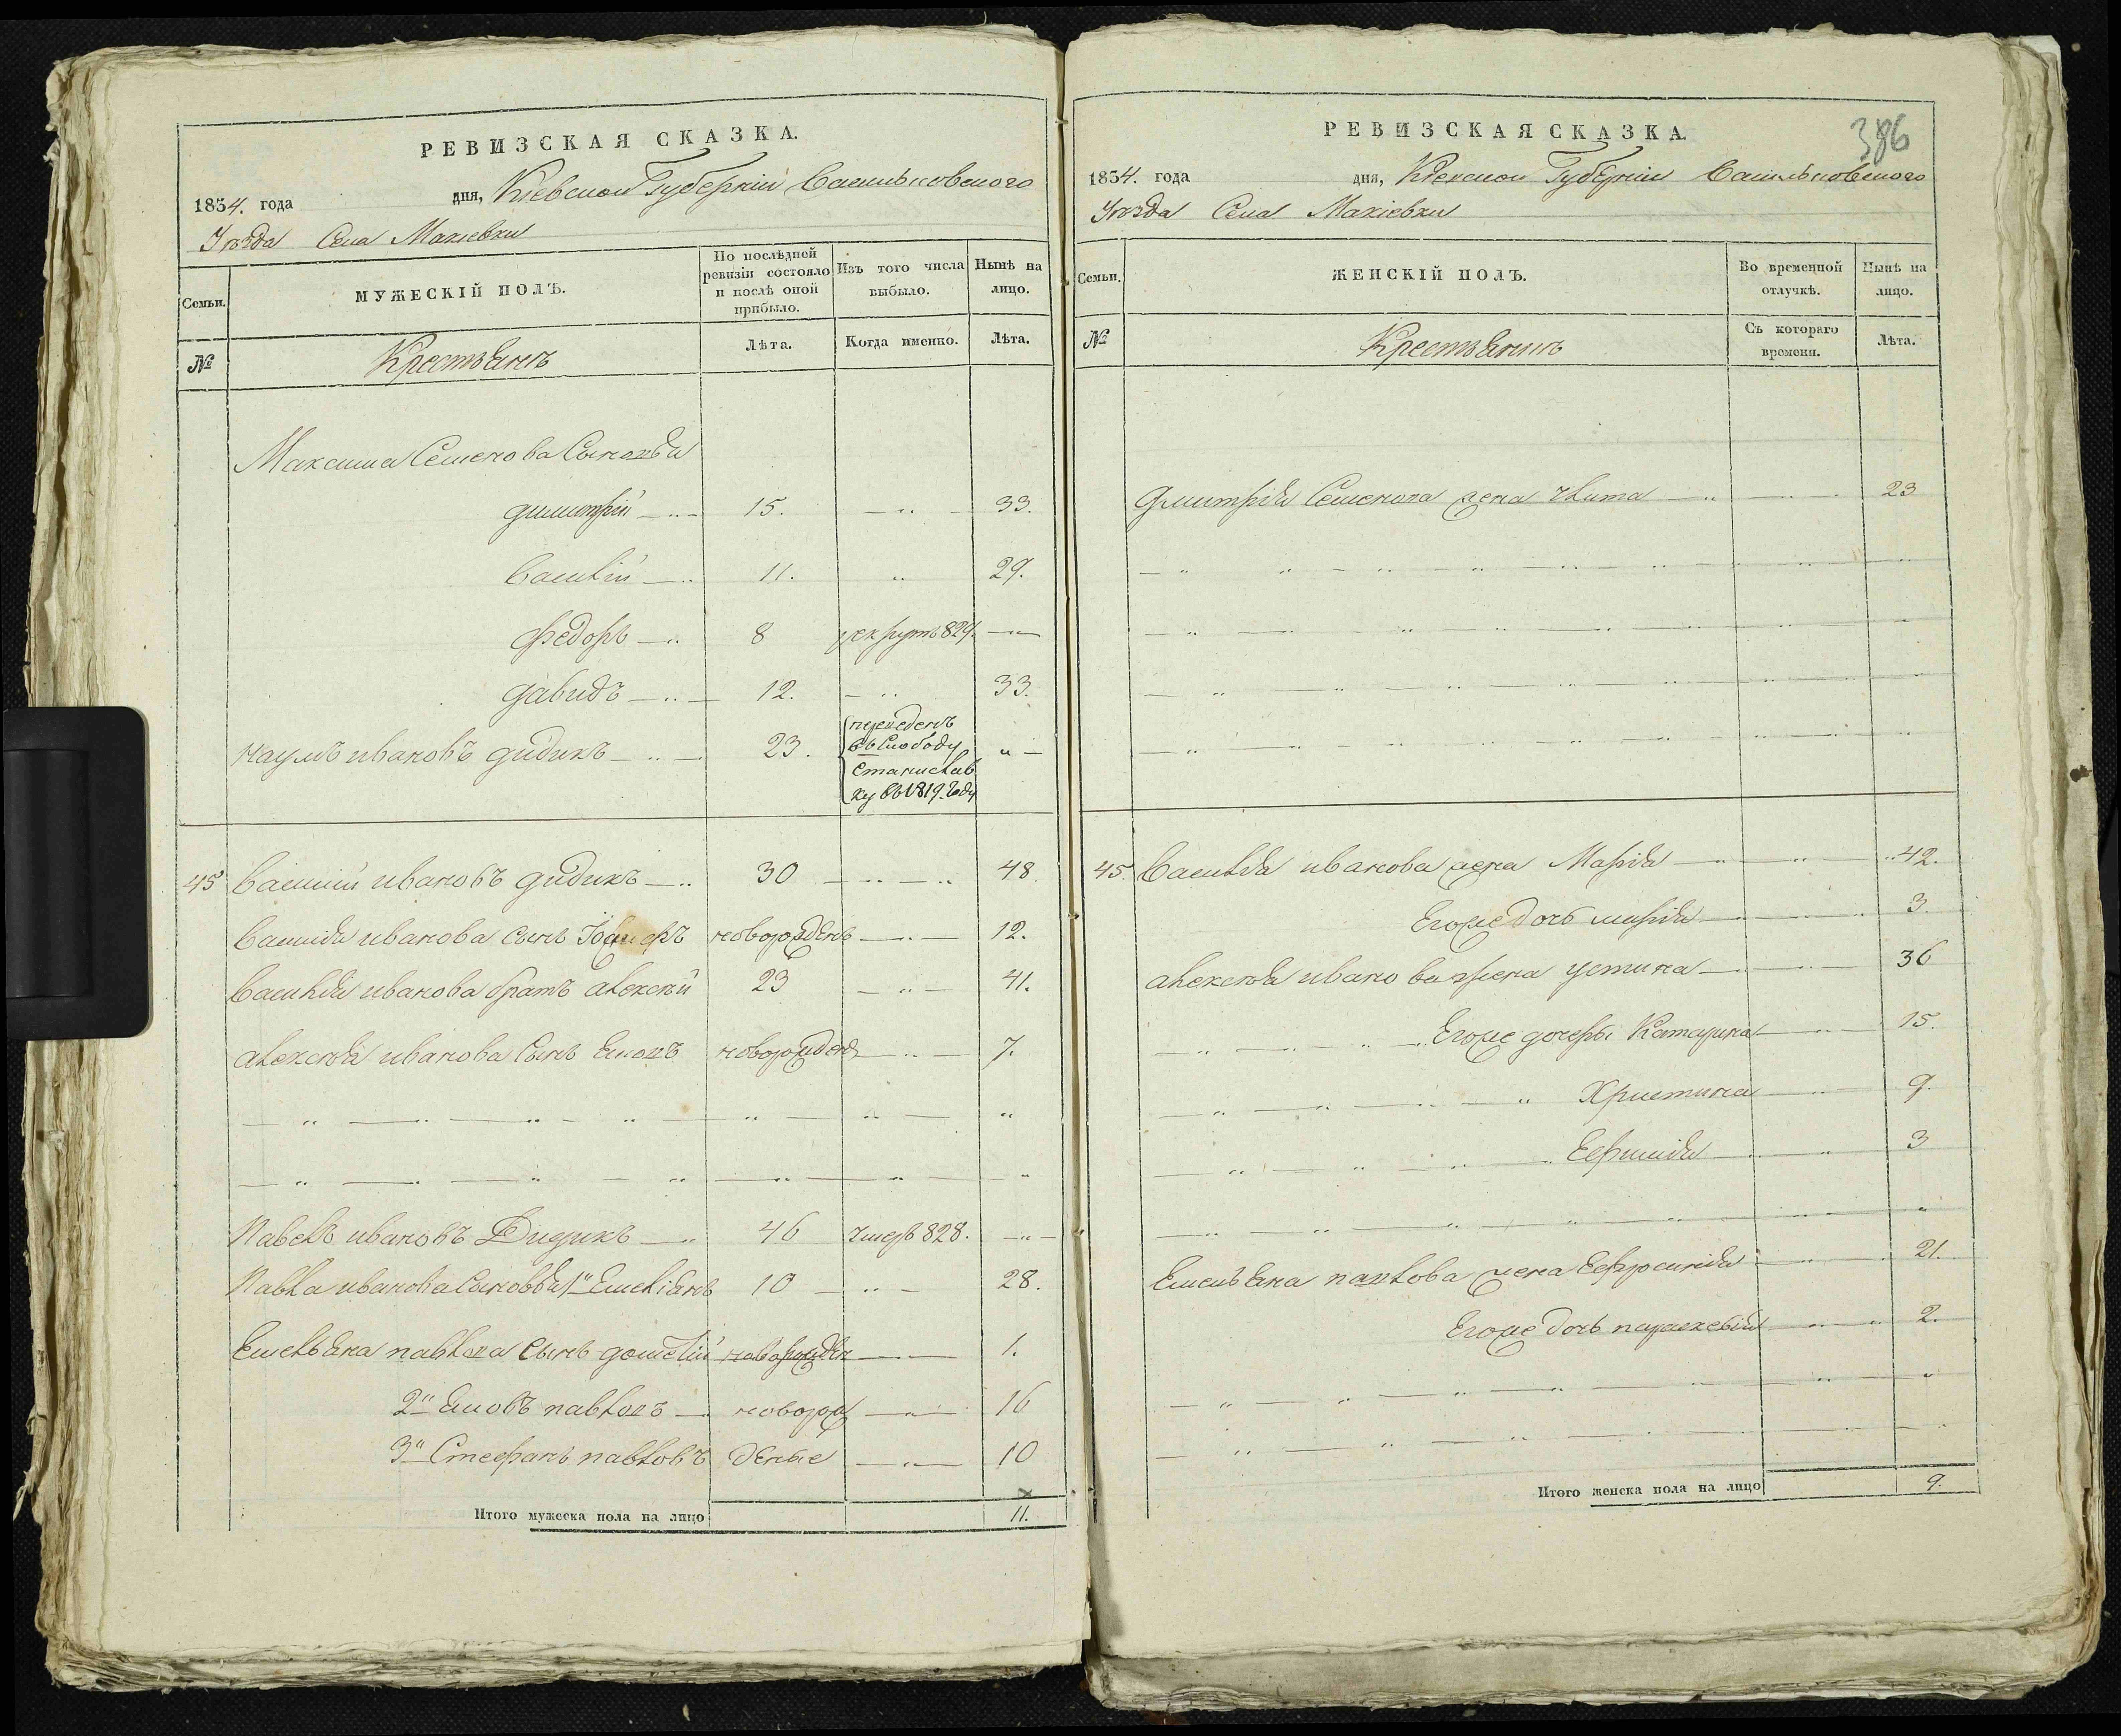 РЕВИЗСКАЯ СКАЗКА.
1834. года дня, Кіевской Губерніи Васильковского
Уѣзда Села Макіевки
Семьи.
МУЖЕСКІЙ ПОЛЪ.
По послѣдней ревизіи состояло и послѣ оной прибыло.
Изъ того числа выбыло.
Нынѣ на лицо.
№
Крестьянъ
Лѣта.
Когда именно.
Лѣта.
Максима Семенова Сыновья
димитрій — 15. — 33.
Василій — 11. „ 29.
Федоръ — 8 рекрутъ 829. —
давидъ — 12. — 33.
наумъ ивановъ дидикъ — 23. переведенъ „ —
въ Слободу
Станислав
ку въ 1819. году
45 Василій ивановъ дидикъ — 30 — 48
Василія иванова сынъ новорожденъ — 12.
Василія иванова братъ алексѣй 23 — 41.
алексѣя иванова Сынъ Яковъ новорожденъ — 7.
Павелъ ивановъ Дидикъ — 46 умеръ 828. —
Павла иванова Сыновья 1й Емеліянъ 10 — 28.
Емельяна павлова Сынъ новорожден — 1.
2й Яковъ павловъ — новорож — 16
3й Стефанъ павловъ деные — 10
Итого мужеска пола на лицо 11.
386
РЕВИЗСКАЯ СКАЗКА.
1834. года дня, Кіевской Губерніи Васильковского
Уѣзда Села Макіевки
Семьи.
ЖЕНСКІЙ ПОЛЪ.
Во временной отлучкѣ.
Нынѣ на лицо.
№
Крестьянинъ
Съ котораго времени.
Лѣта.
Дмитрія Семенова жена — 23
45. Василія иванова жена Марія — 42.
Егоже дочь марія — 3.
алексѣя иванова жена устина — 36
Егоже дочеры Катарина — 15.
Христина — 9.
— 3
Емельяна павлова жена Ефросинія — 21.
Егоже дочь параскевія — 2.
Итого женска пола на лицо 9.